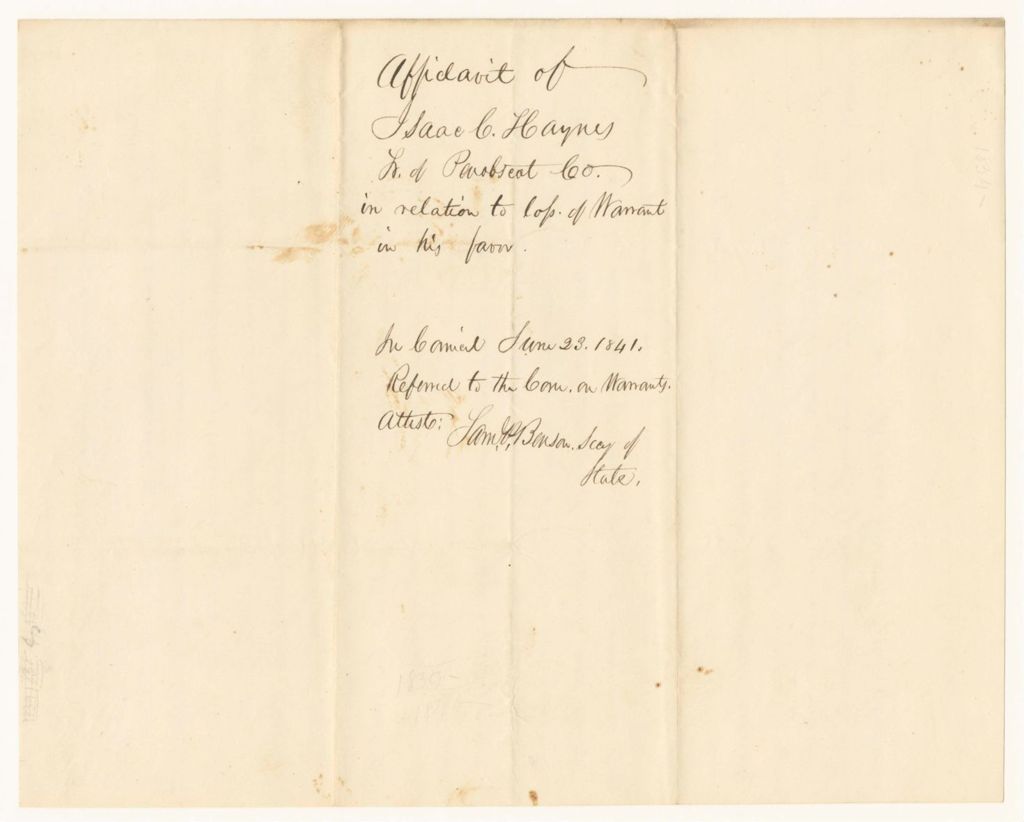 Affidavit of
Isaac C. Haynes
Tr. of Penobscot Co.
in relation to loss of Warrant
in his favor.
In Council June 23. 1841.
Referred to the Com. on Warrants.
Attest: Saml. P. Benson. Secy of
State.
1835-